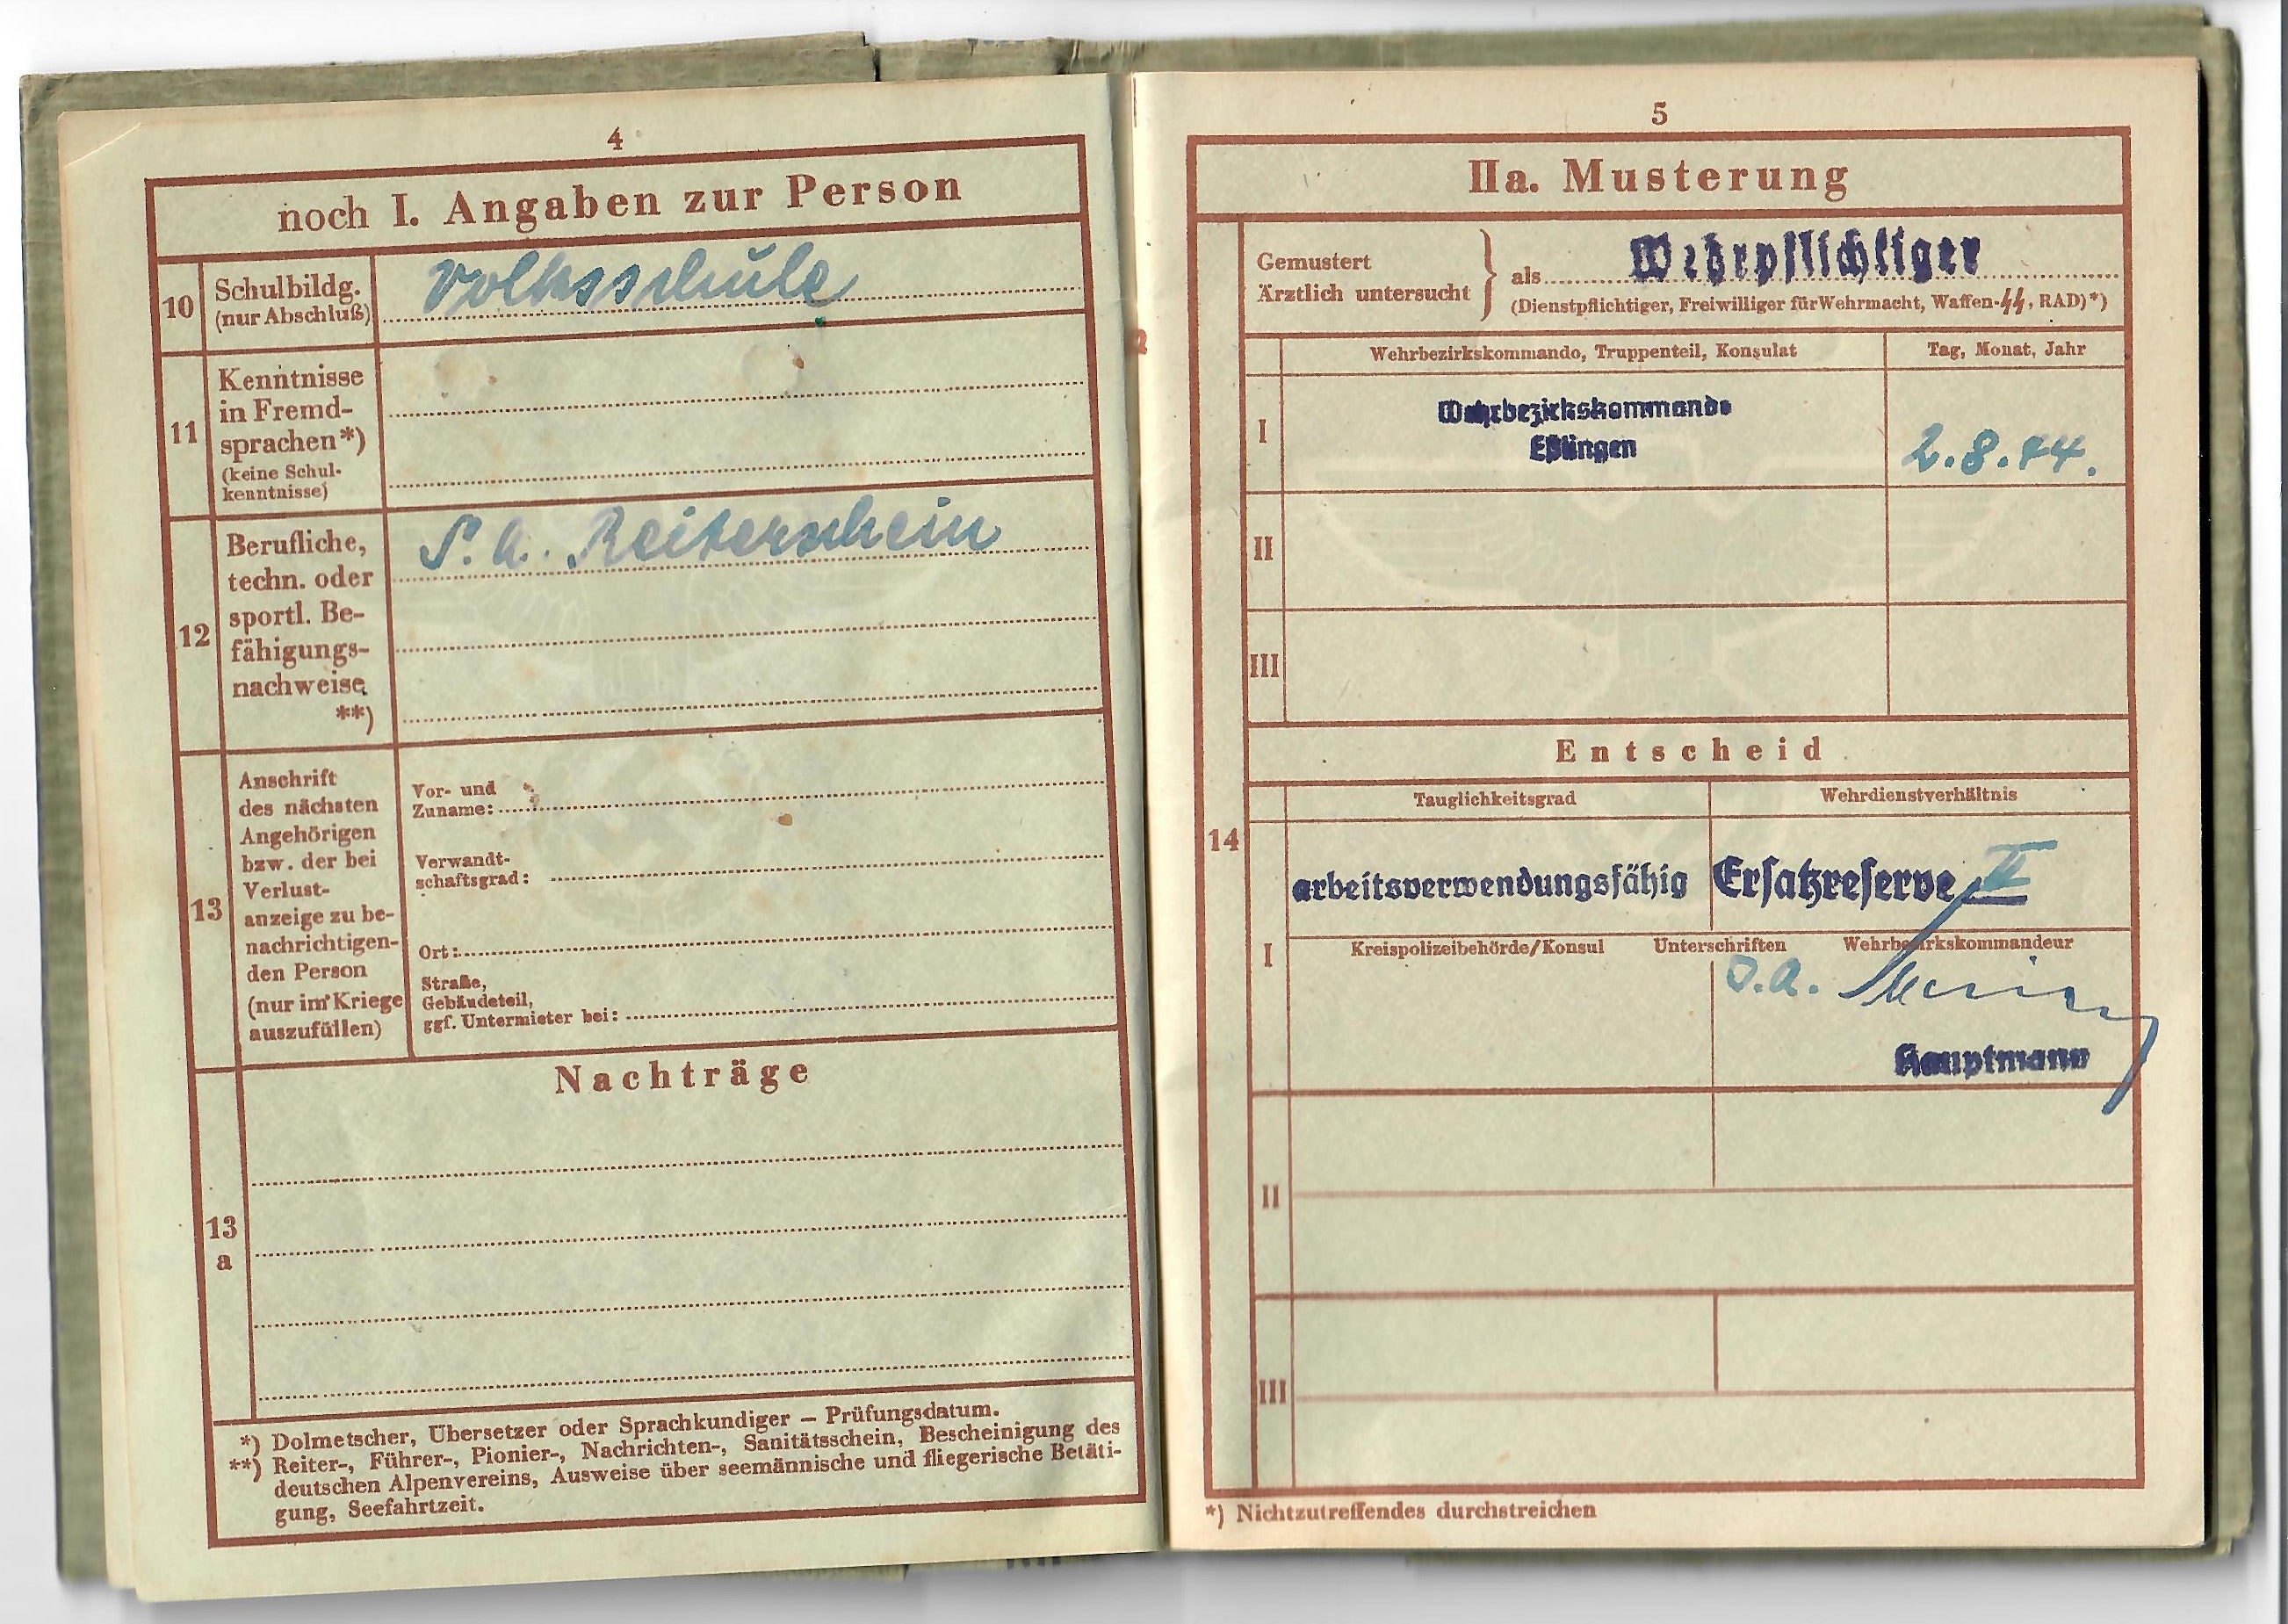 4
noch I. Angaben zur Person
10
Schulbildg.
(nur Abschluß)
Volksschule
11
Kenntnisse
in Fremd-
sprachen*)
(keine Schul-
kenntnisse)
12
Berufliche,
techn. oder
sportl. Be-
fähigungs-
nachweise
**)
S. A. Reiterschein
13
Anschrift
des nächsten
Angehörigen
bzw. der bei
Verlust-
anzeige zu be-
nachrichtigen-
den Person
(nur im Kriege
auszufüllen)
Vor- und
Zuname:
Verwandt-
schaftsgrad:
Ort:
Straße,
Gebäudeteil,
ggf. Untermieter bei:
Nachträge
13
a
*) Dolmetscher, Übersetzer oder Sprachkundiger – Prüfungsdatum.
**) Reiter-, Führer-, Pionier-, Nachrichten-, Sanitätsschein, Bescheinigung des
deutschen Alpenvereins, Ausweise über seemännische und fliegerische Betäti-
gung, Seefahrtzeit.
5
IIa. Musterung
Gemustert
Ärztlich untersucht
als Wehrpflichtiger
(Dienstpflichtiger, Freiwilliger für Wehrmacht, Waffen-SS, RAD)*)
Wehrbezirkskommando, Truppenteil, Konsulat Tag, Monat, Jahr
I
Wehrbezirkskommando
Eßlingen
2.8.44.
II
III
Entscheid
14
Tauglichkeitsgrad Wehrdienstverhältnis
arbeitsverwendungsfähig Ersatzreserve II
I
Kreispolizeibehörde/Konsul Unterschriften Wehrbezirkskommandeur
Hauptmann
II
III
*) Nichtzutreffendes durchstreichen